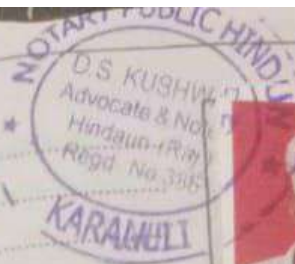 NOTARY PUBLIC HINDAUN
D.S. KUSHW
Advocate & No
Hindaun (Raj
Regd. No.
KARAULI